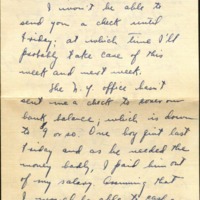 I won't be able to
send you a check until
Friday: at which time I'll
probably take care of this
week and next week.
The N.Y office hasn't
sent me a check to cover our
bank balance, which is down
to $9 or so. One boy just last
Friday and as he needed the
money badly, I paid him out
of my salary. Assuming that
I would be able to